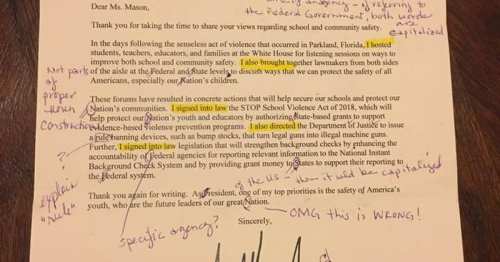 Dear Ms. Mason,
Federal agency - if referring to
the Federal Government, both words
are
capitalized
Thank you for taking the time to share your views regarding school and community safety.
In the days following the senseless act of violence that occurred in Parkland, Florida, I hosted
students, teachers, educators, and families at the White House for listening sessions on ways to
improve both school and community safety. I also brought together lawmakers from both sides
of the aisle at the Federal and State levels to discuss ways that we can protect the safety of all
Americans, especially our Nation's children.
Not part
of
proper
noun
construction
These forums have resulted in concrete actions that will help secure our schools and protect our
Nation's communities. I signed into law the STOP School Violence Act of 2018, which will
help protect our Nation's youth and educators by authorizing State-based grants to support
evidence-based violence prevention programs. I also directed the Department of Justice to issue
a rule banning devices, such as bump stocks, that turn legal guns into illegal machine guns.
Further, I signed into law legislation that will strengthen background checks by enhancing the
accountability of Federal agencies for reporting relevant information to the National Instant
Background Check System and by providing grant money to States to support their reporting to
the Federal system.
?
explain
"rule"
of the US - then it would be capitalized
Thank you again for writing. As President, one of my top priorities is the safety of America's
youth, who are the future leaders of our great Nation.
specific agency?
Sincerely,
OMG this is WRONG!